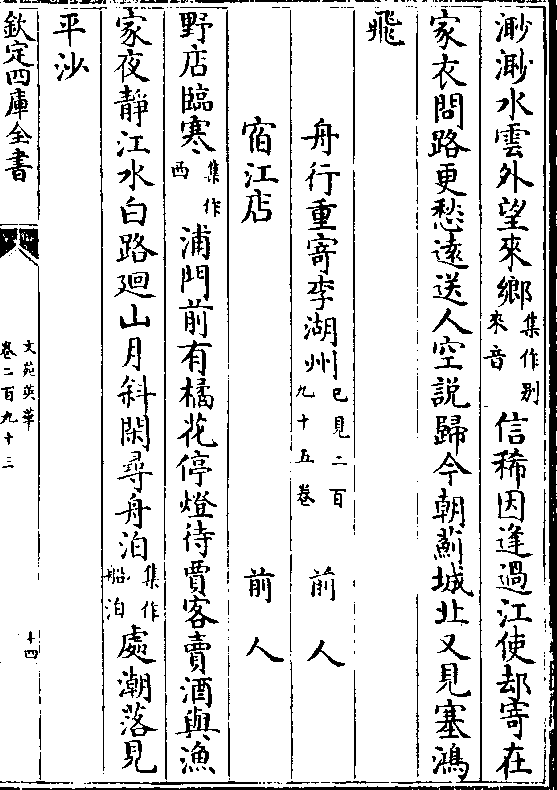 渺渺水雲外望來鄉集作别來音信稀因逢過江使却寄在
家衣問路更愁逺送人空說歸今朝薊城北又見塞鴻
飛
舟行重寄李湖州已見二百九十五卷 前人
宿江店 前人
野店臨寒集作西浦門前有橘花停燈待賈客賣酒與漁
家夜靜江水白路廻山月斜閑尋舟泊集作船泊處潮落見
平沙
欽定四庫全書
文苑英華
卷二百九十三
十四